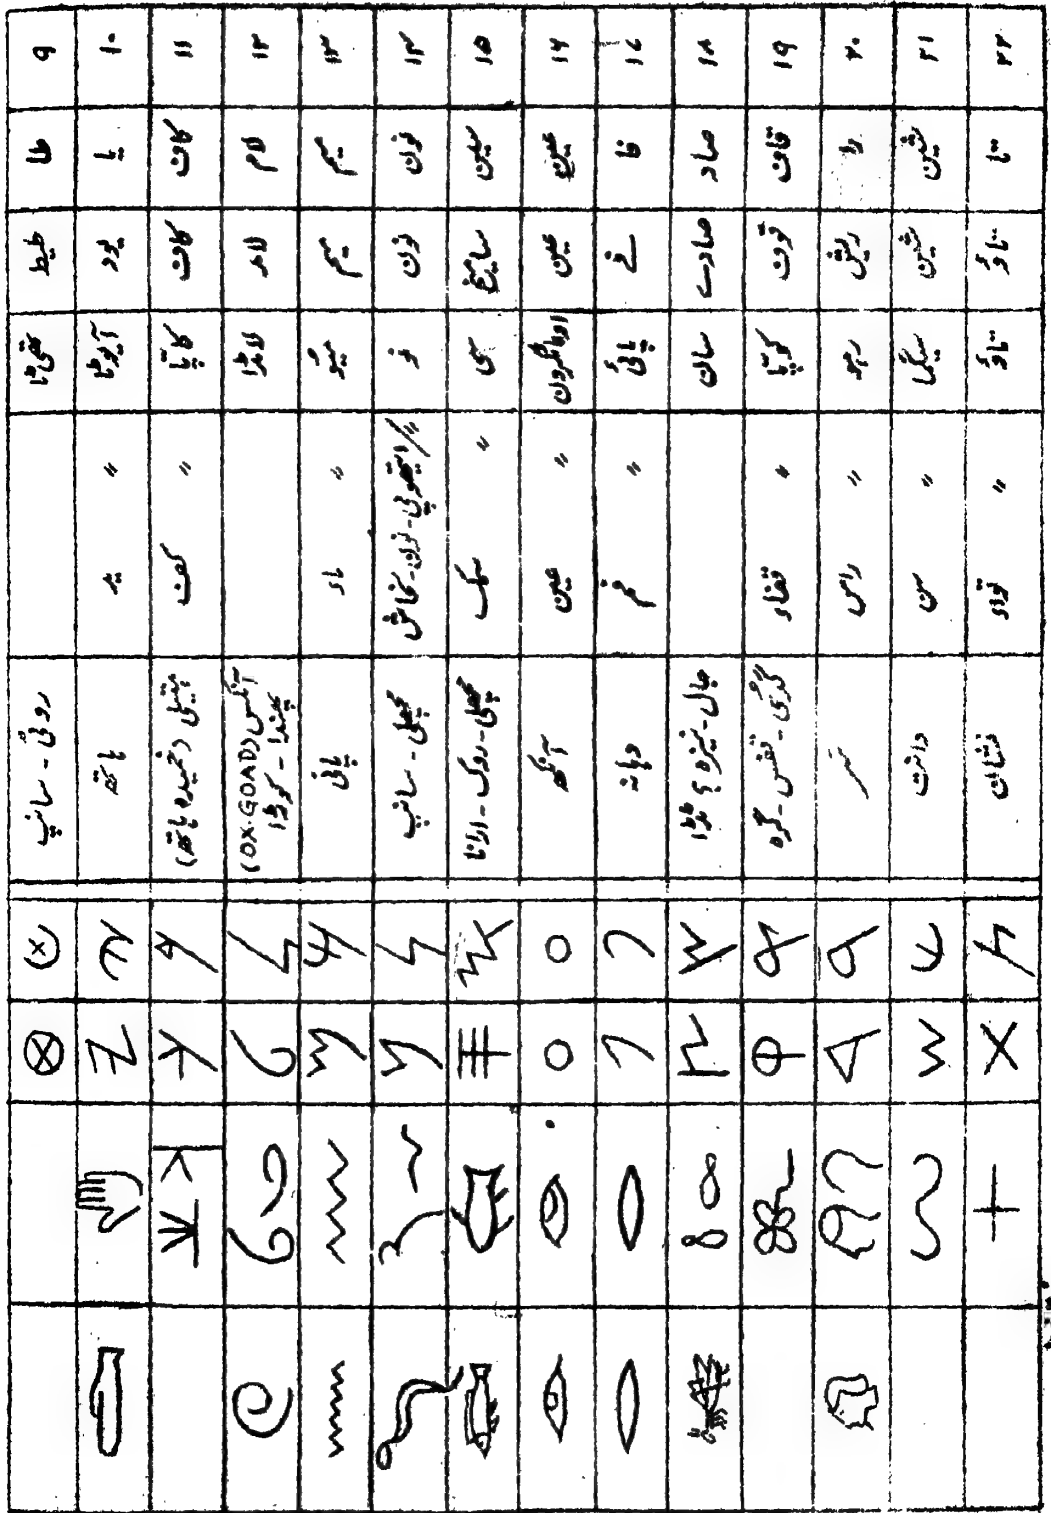 ۹ طا طیط تھی ٹا روئی - سانپ
۱۰ یا یود آیوٹا " ید ہاتھ
۱۱ کاف کاف کاپا " کف ہتیلی (خمیدہ ہاتھ)
۱۲ لام لامد لامڈا آنکس (OX.GOAD) پھندا - کوڑا
۱۳ میم میم میو " ماء پانی
۱۴ نون نون نو " / ایتھوپی - نون - نحاش مچھلی - سانپ
۱۵ سین سامیخ سی " سمک مچھلی - روک -
۱۶ عین عین اوماکرون " عین آنکھ
۱۷ فا فے پائی " فم دہانہ
۱۸ صاد صادے سان جال - نیزہ ؟ ٹڈا
۱۹ قاف قوف کوپا " قفاء گدی - قفس - گرہ
۲۰ را ریش رہو " راس سر
۲۱ شین شین سیگما " سن دانت
۲۲ تا تاؤ تاؤ " تواء نشان